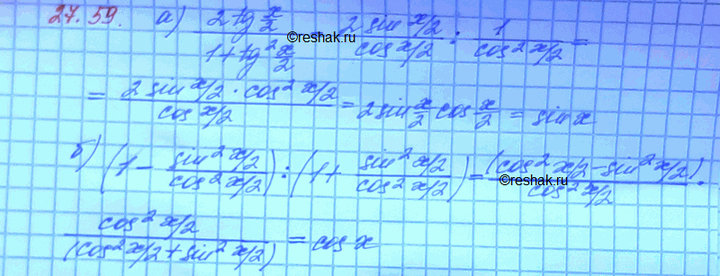 27.59. а) 2 tg x/2 / 1 + tg² x/2 2 sin x/2 / cos x/2 : 1 / cos² x/2 =
= 2 sin x/2 · cos² x/2 / cos x/2 = 2 sin x/2 cos x/2 = sin x
б) (1 - sin² x/2 / cos² x/2) : (1 + sin² x/2 / cos² x/2) = (cos² x/2 - sin² x/2) / cos² x/2 ·
cos² x/2 / (cos² x/2 + sin² x/2) = cos x
©reshak.ru
©reshak.ru